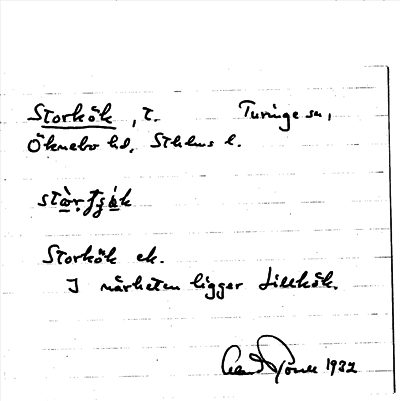 Storkök, t. Turinge sn,
Öknebo hd, Sthlms l.
Storkök ek.
I närheten ligger Lillkök.
1932